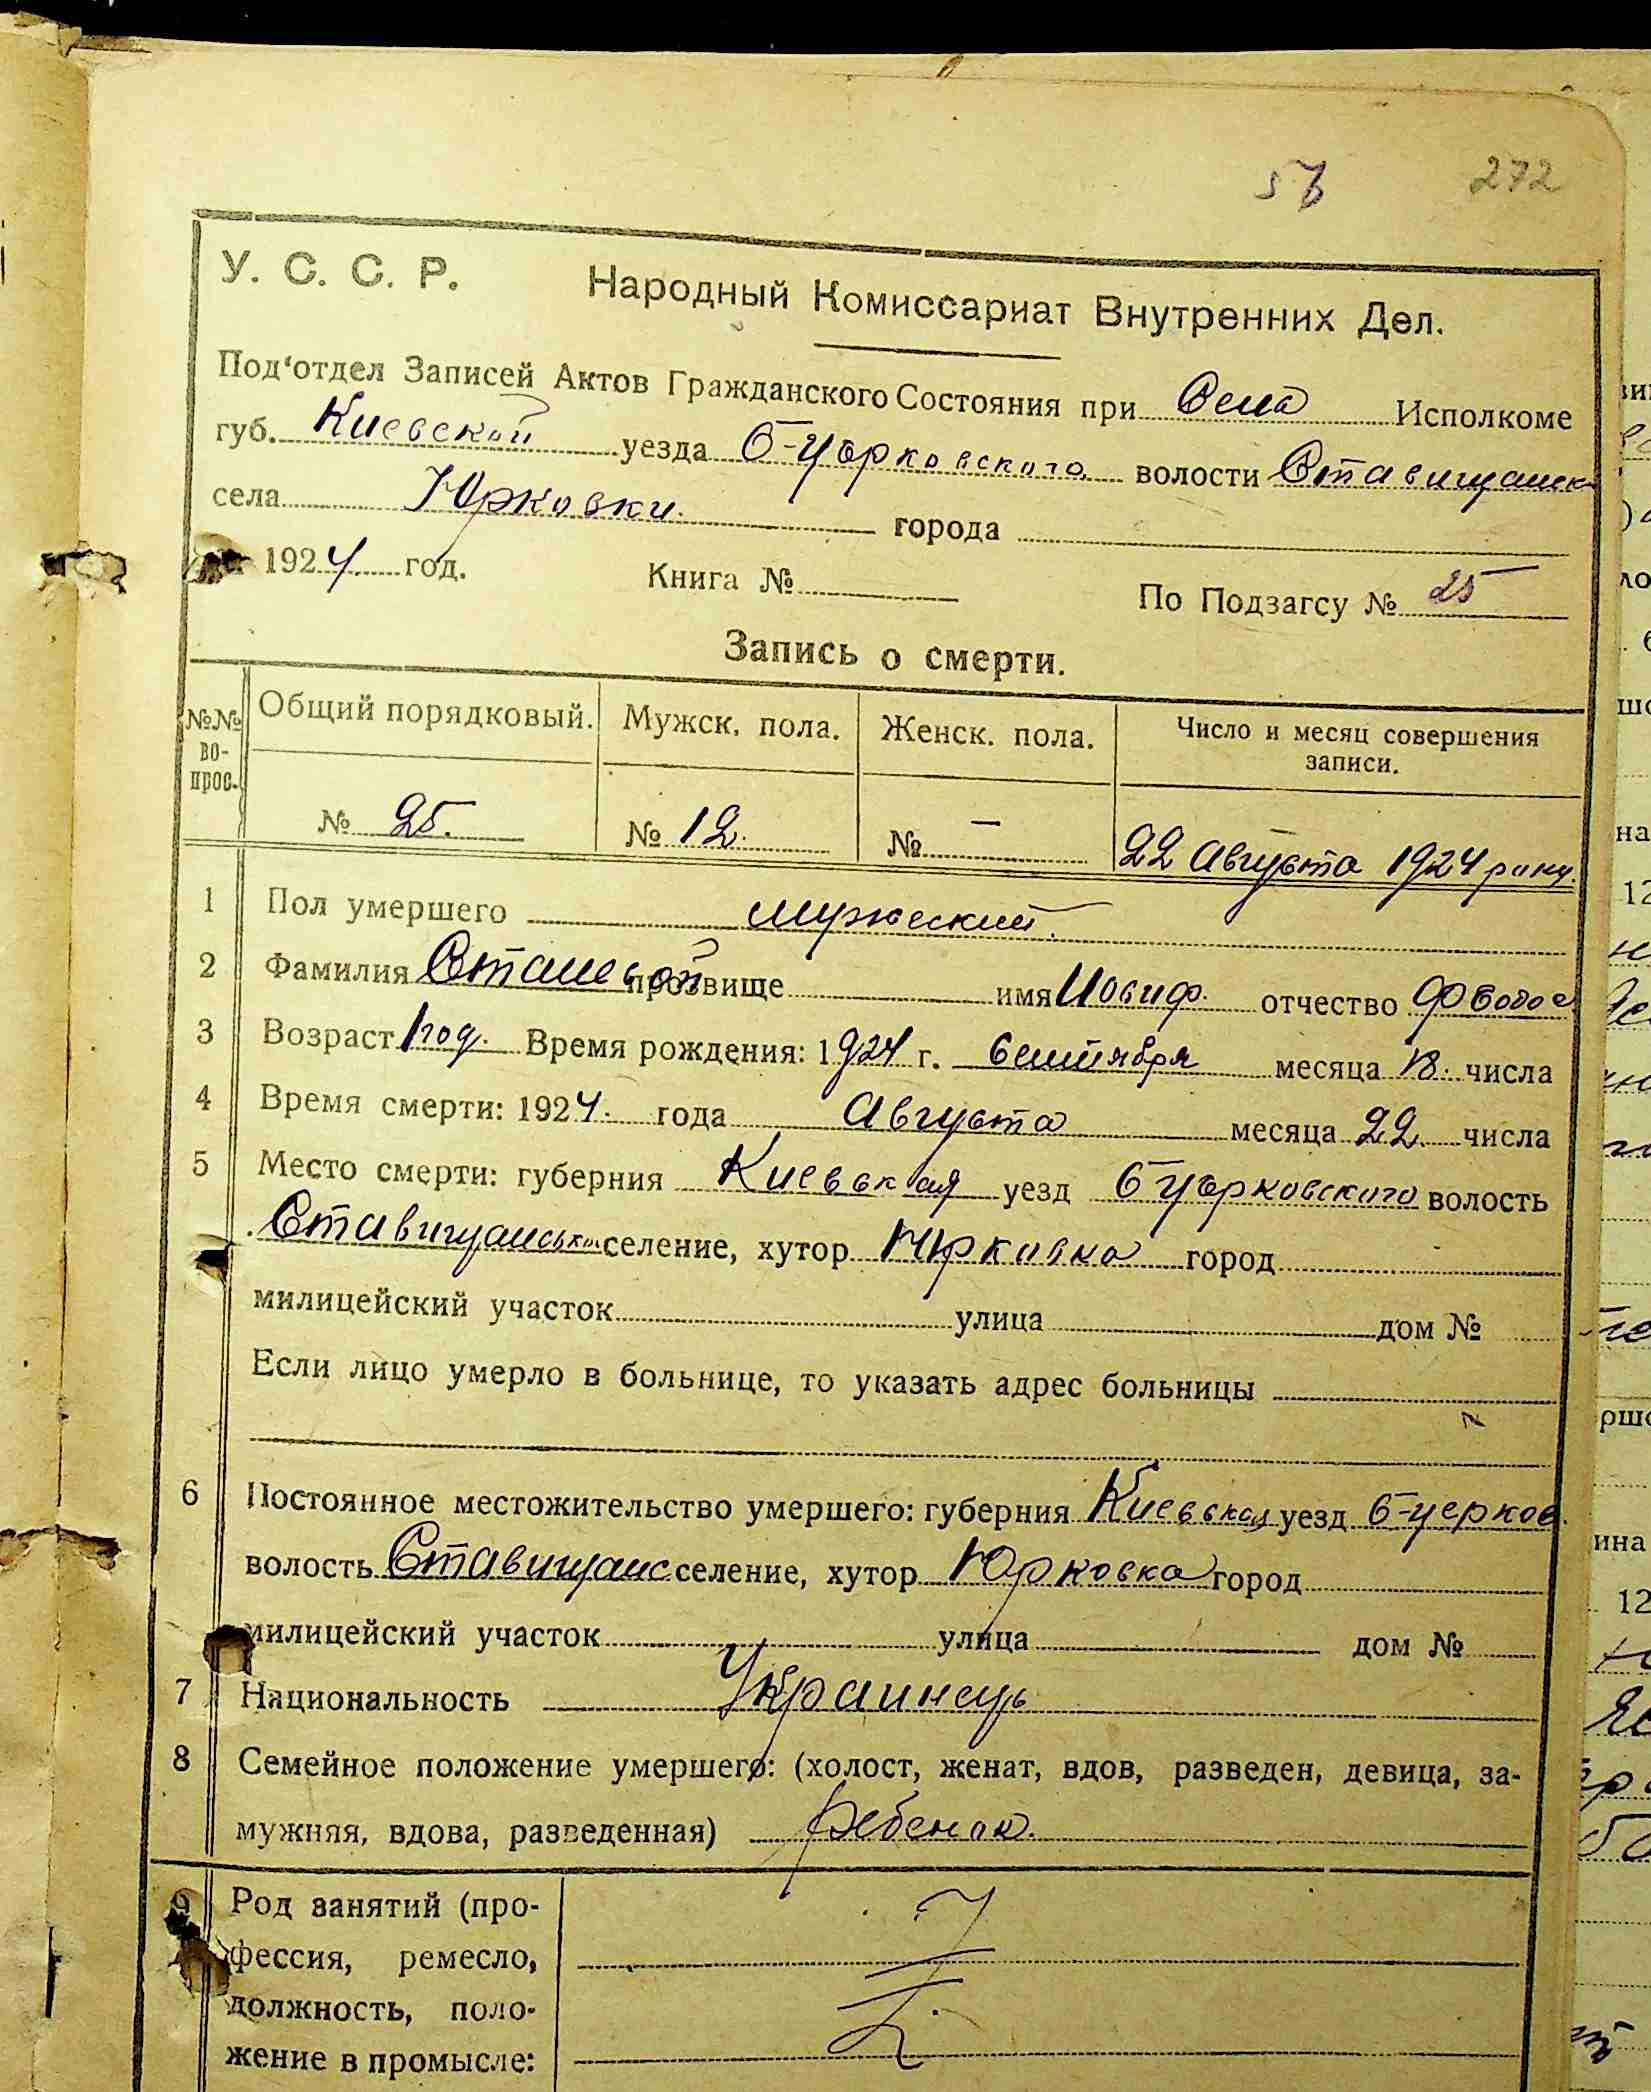 272
У. С. С. Р. Народный Комиссариат Внутренних Дел.
Под'отдел Записей Актов Гражданского Состояния при Села Исполкоме
губ. Киевской уезда Б-Церковского волости Ставищанск
села Юрковки. города
1924 год. Книга № По Подзагсу № 25
Запись о смерти.
№№ во- прос. Общий порядковый. Мужск. пола. Женск. пола. Число и месяц совершения записи.
№ 25. № 12. № — 22 Августа 1924 року.
1 Пол умершего мужеский.
2 Фамилия прозвище имя Иосиф. отчество
3 Возраст 1 год. Время рождения: 1924 г. Сентября месяца 18. числа
4 Время смерти: 1924. года Августа месяца 22. числа
5 Место смерти: губерния Киевская уезд Б Церковского волость
Ставищанська селение, хутор Юрковка город
милицейский участок улица дом №
Если лицо умерло в больнице, то указать адрес больницы
6 Постоянное местожительство умершего: губерния Киевская уезд Б-церков.
волость Ставищанс селение, хутор Юрковка город
милицейский участок улица дом №
7 Национальность Украинець
8 Семейное положение умершего: (холост, женат, вдов, разведен, девица, за-
мужняя, вдова, разведенная) Ребенок.
9 Род занятий (про-
фессия, ремесло,
должность, поло-
жение в промысле: